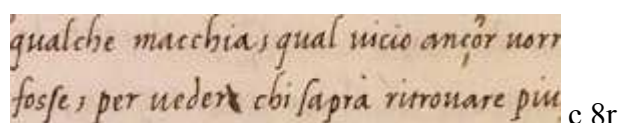 qualche macchia; qual uicio ançor uorr
fosse; per ueder chi sapra ritrouare piu c 8r